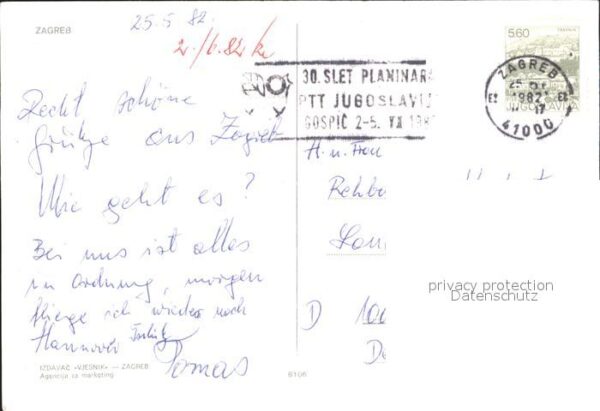 ZAGREB
25.5.82.
2./6.82 k
TRAVNIK
5.60
30. SLET PLANINARA
PTT JUGOSLAVIJE
GOSPIĆ 2-5. VII 1982
ZAGREB
25
1982
17
41000
JUGOSLAVIJA
Recht schöne
Grüße aus Zagreb
Wie geht es?
Bei uns ist alles
in Ordnung, morgen
fliege ich wieder nach
Hannover Tschüß
Tomas
H. u. Frau
Rehbo
D
privacy protection
Datenschutz
IZDAVAČ «VJESNIK» — ZAGREB
Agencija za marketing
6106